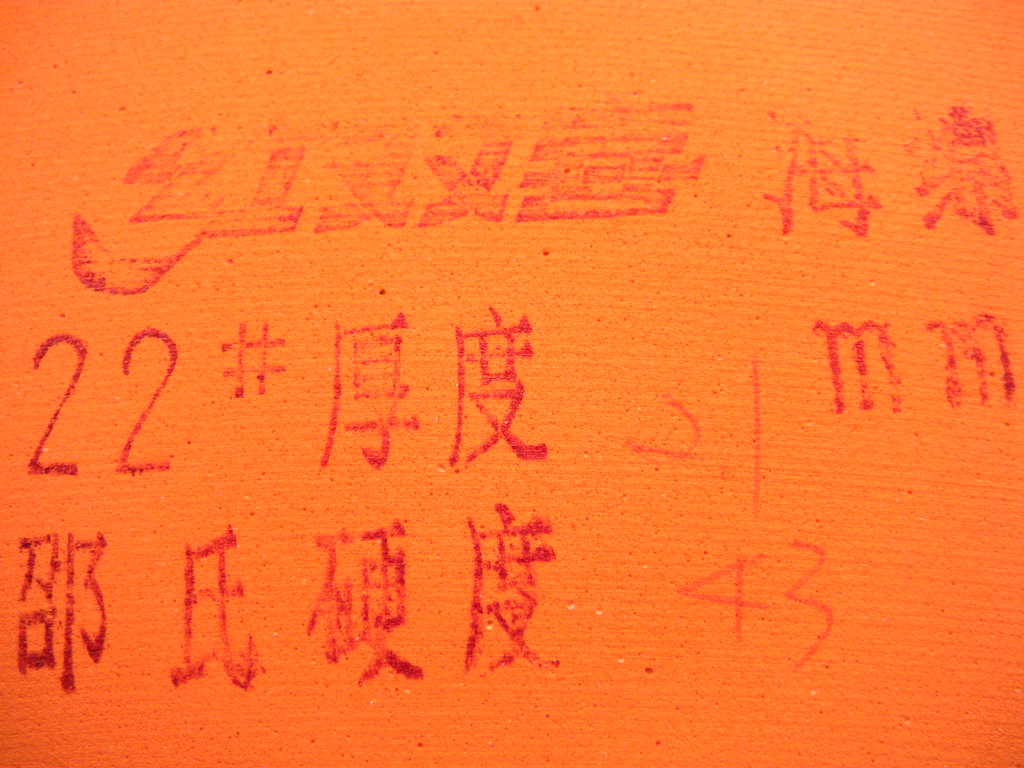 红双喜 海绵
22# 厚度 2.1 mm
邵氏硬度 43